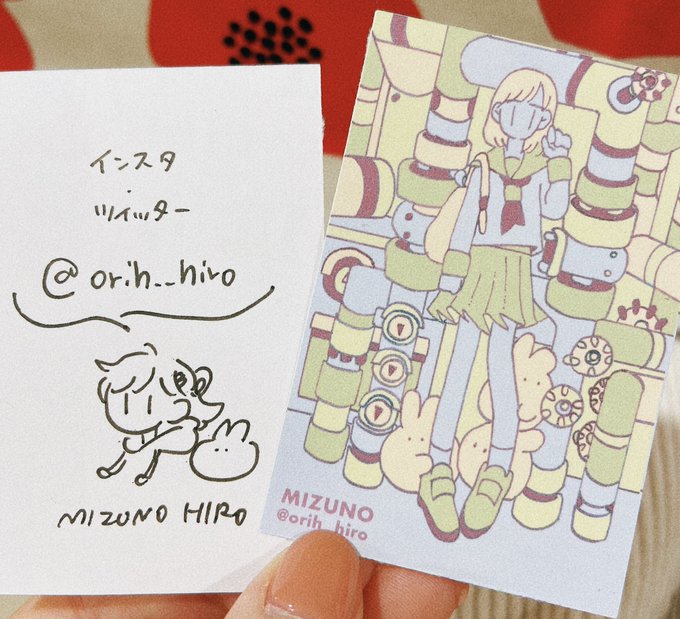 インスタ
・
ツイッター
@orih__hiro
MIZUNO HIRO
MIZUNO
@orih__hiro